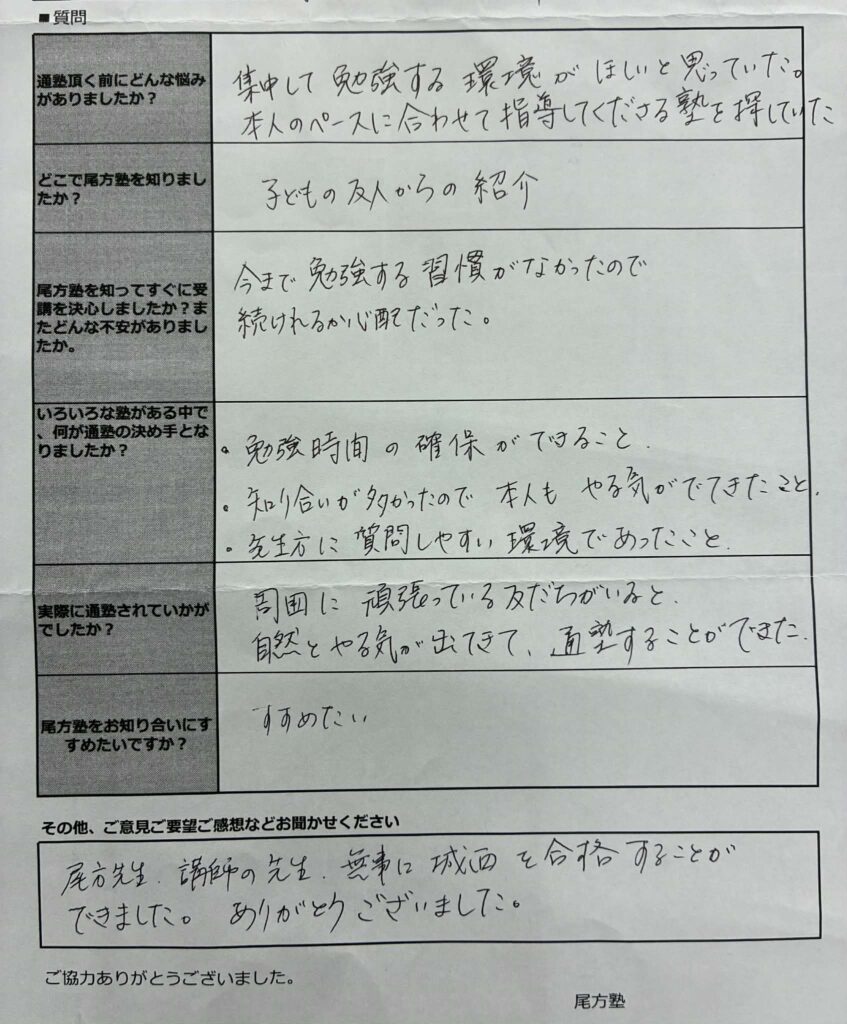 ■質問
通塾頂く前にどんな悩み
がありましたか？
集中して 勉強する 環境が ほしいと思っていた。
本人のペースに合わせて指導してくださる塾を探していた
どこで尾方塾を知りまし
たか？
子どもの友人からの紹介
尾方塾を知ってすぐに受
講を決心しましたか？ま
たどんな不安がありまし
たか。
今まで勉強する習慣がなかったので
続けれるか心配だった。
いろいろな塾がある中で
、何が通塾の決め手とな
りましたか？
・勉強時間の確保ができること.
・知り合いが多かったので 本人も やる気がでてきたこと.
・先生方に質問しやすい環境であったこと.
実際に通塾されていかが
でしたか？
周囲に 頑張っている友だちがいると.
自然とやる気が出てきて、通塾することができた.
尾方塾をお知り合いにす
すめたいですか？
すすめたい
その他、ご意見ご要望ご感想などお聞かせください
尾方先生. 講師の先生. 無事に 城西を合格することが
できました。 ありがとうございました。
ご協力ありがとうございました。
尾方塾